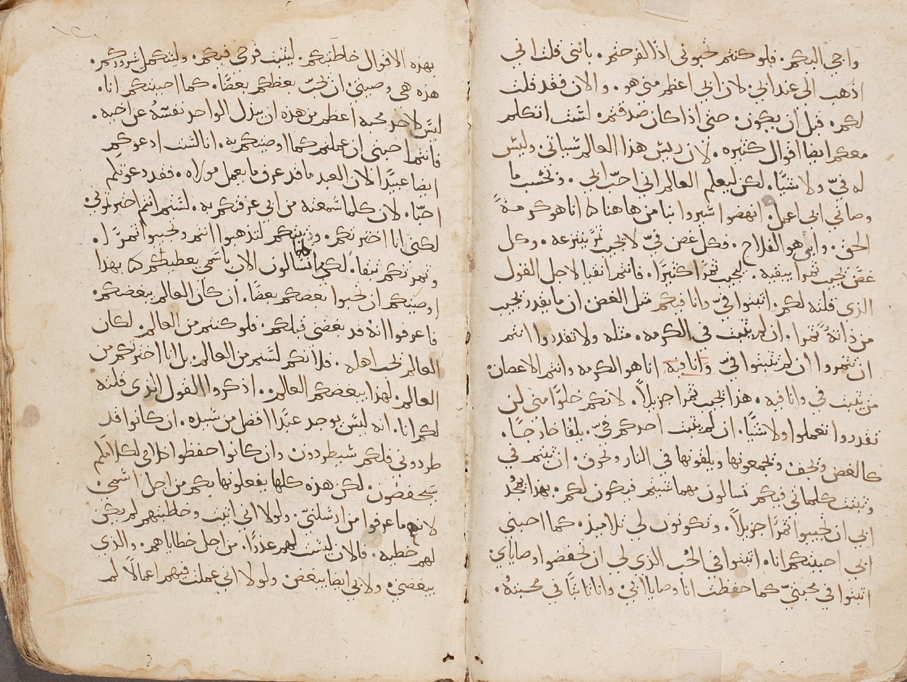 واجي اليكم. فلو كنتم تحبوني اذا لفرحتم. بانني قلت اني
اذهب الى عند ابي. لان ابي اعظم مني هو. والان فقد قلت
لكم. قبل ان يكون. حتى اذا كان صدقتم. لست اتكلم
معكم ايضا اقوال كثيره. لان ريس هذا العالم سياتي. وليس
له فيّ ولا شيًا. لكن ليعلم العالم اني احب ابي. وبحسب ما
وصاني ابي اعمل. انهضوا سيروا بنا من هاهنا انا هو كرمة
الحق. وابي هو الفلاح. فكل غصن فيّ لا يجيب ثمرً ينتزعه. وكل
غصن يجيب ثمرا ينقيه. ليجب ثمرًا كثيرًا. فانتم انقيا لاجل القول
الذي قلته لكم. اثبتوا فيّ وانا فيكم مثل الغصن ان ما يقدر يجيب
من ذاته ثمرا. ان لم يثبت في الكرمه. مثله ولا تقدروا انتم
ان تثمروا ان لم تثبتوا فيّ وانا فيه انا هو الكرمه وانتم الاغصان.
من يثبت في وانا فيه. هذا يجيب ثمرا جزيلاً. لانكم خلوًا مني لن
تقدروا تعملوا ولا شيًا. ان لم يثبت احدكم فيّ. يلقا خارجًا.
كالغصن ويجف ويجمعونها ويلقونها في النار وتحرق. ان ثبتم في
وتبتت كلماتي فيكم تسالون مهما شيتم فيكون لكم. بهذا يمجد
ابي ان تجيبوا ثمرًا جزيلاً. وتكونون لي تلاميذ. كما احبني
ابي احببتكم انا. اثبتوا في الحب الذي لي ان تحفضوا وصاياي
اثبتوا في محبتي كما حفظت انا وصايا ابي. وانا ثابتًا في محبته.
بهذه الاقوال خاطبتكم. ليثبت فرحي فيكم. وليكمل سروركم.
هذه هي وصيتي ان يحب بعضكم بعضًا. كما احببتكم انا.
ليس لاحد محبه اعظم من هذه ان يبذل الواحد نفسه عن احبه.
فانتم احبتي ان عملتم كما اوصيتكم به. انا لست ادعوكم
ايضا عبيدًا لان العبد ما قد عرف ما يعمل مولاه. فقد دعوتكم
احبا. لان كلما سمعته من ابي عرفتكم به. لستم انتم اخترتوني
لكني انا اخترتكم. وثبتكم لتذهبوا انتم وتجيبوا ثمرً.
وثمرتكم تبقا. لكي ما تسالون الاب باسمي يعطيكم بهذا
اوصيتكم ان تحبوا بعضكم بعضًا. ان كان العالم يبغضكم.
فاعرفوا انه قد بغضني قبلكم. فلو كنتم من العالم. لكان
العالم يحب اهله. فلانكم لستم من العالم. بل انا اخترتكم من
العالم. لهذا يبغضكم العالم. اذكروا القول الذي قلته
لكم انا. انه ليس يوجد عبدًا افضل من سيده. ان كانوا قد
طردوني فلكم سيطردون وان كانوا حفظوا قولي لكلامكم
سيحفضون. لكن هذه كلها يفعلونها بكم من اجل اسمي.
لانهم ما عرفوا من ارسلني. ولولا اني اتيت وخطبتهم لم يكن
لهم خطيه. فالان ليست لهم عذرًا. من اجل خطاياهم. والذي
يبغضني. ولابي ايضا يبغض ولولا اني عملت فيهم اعمالا لم